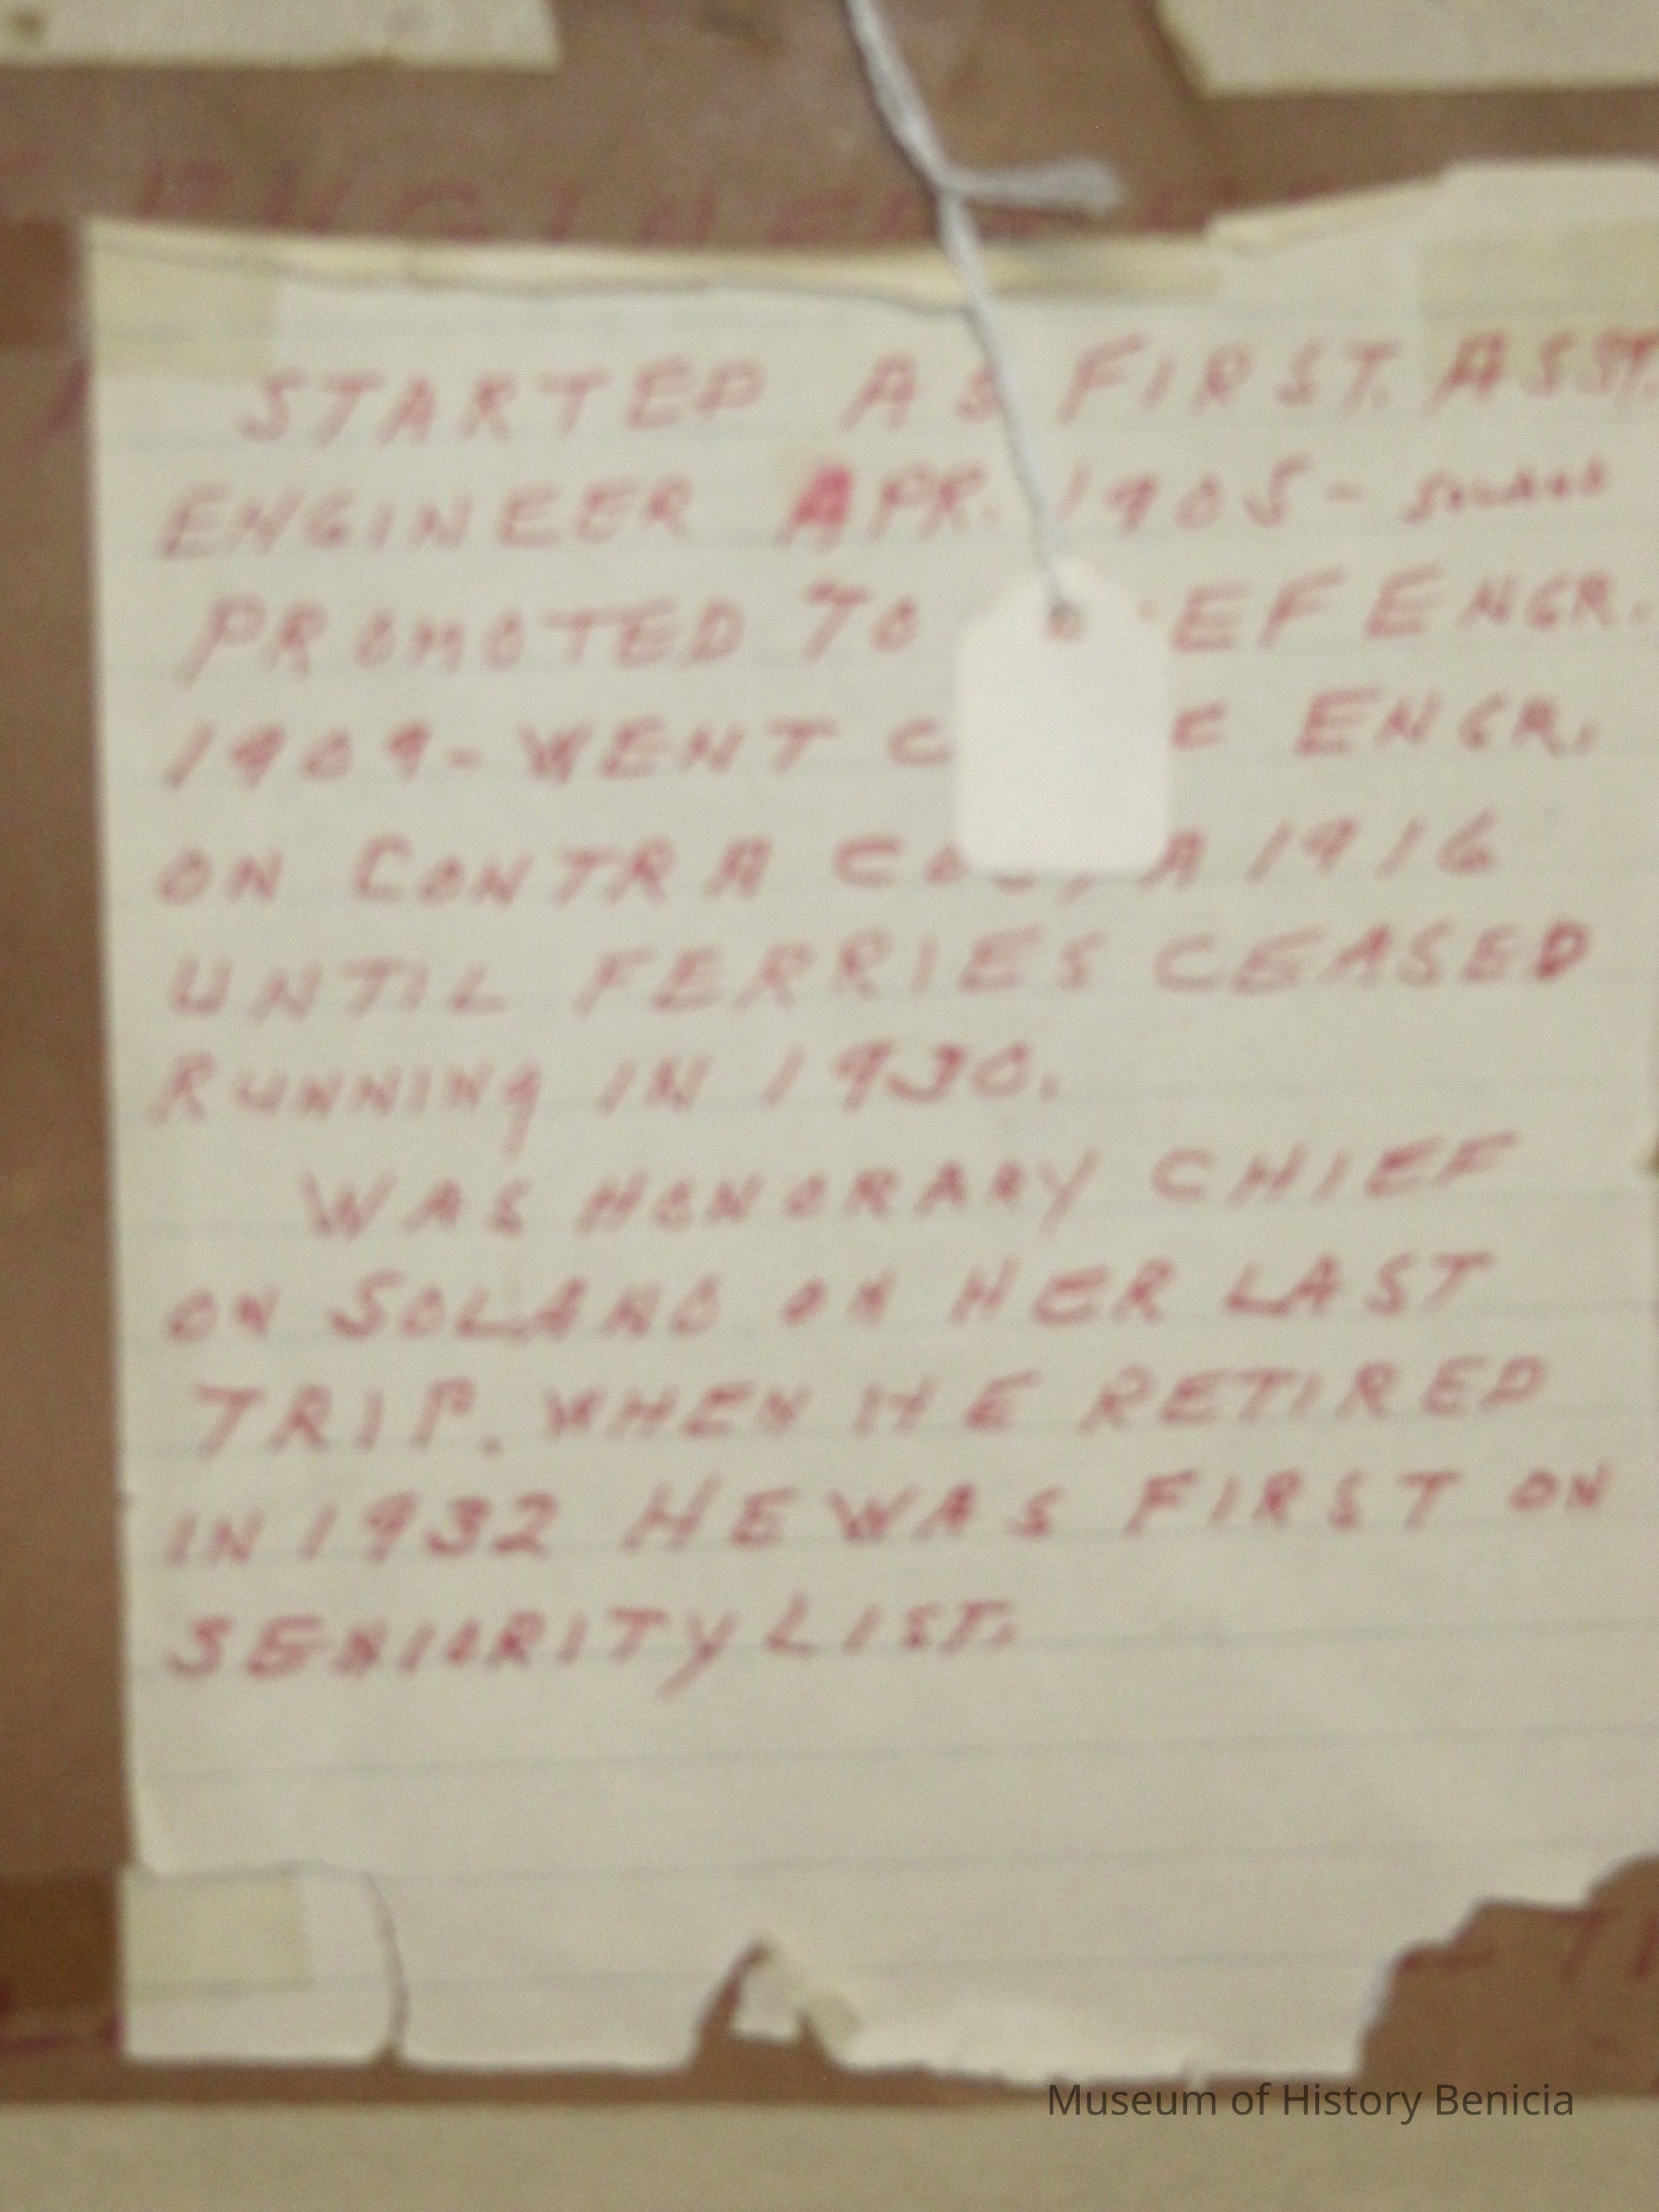 ENGINEER
STARTED AS FIRST. ASST.
ENGINEER APR. 1905 - SOLANO
PROMOTED TO EF ENGR.
1909 - WENT ENGR.
ON CONTRA COSTA 1916
UNTIL FERRIES CEASED
RUNNING IN 1930.
WAS HONORARY CHIEF
ON SOLANO ON HER LAST
TRIP. WHEN HE RETIRED
IN 1932 HE WAS FIRST ON
SENIORITY LIST.
Museum of History Benicia